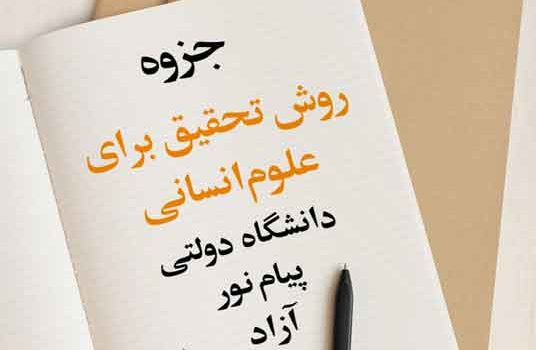 جزوه
روش تحقیق برای
علوم‌انسانی
دانشگاه دولتی
پیام نور
آزاد